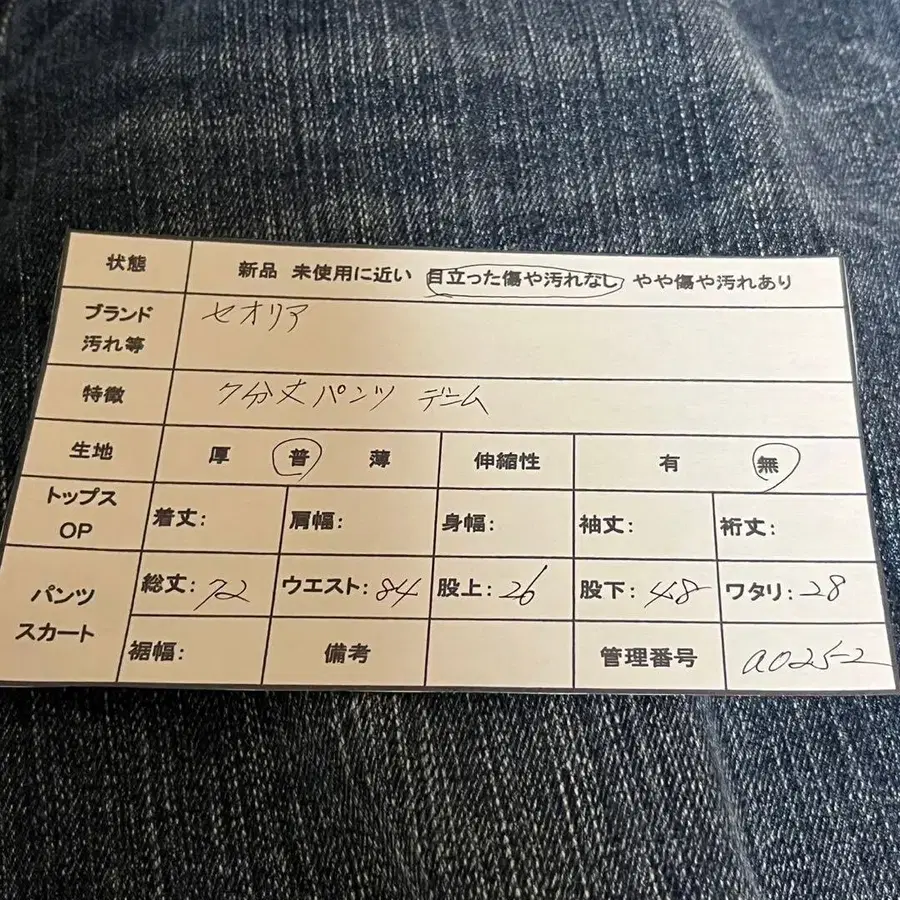 状態 新品 未使用に近い 目立った傷や汚れなし やや傷や汚れあり
ブランド 汚れ等 セオリア
特徴 7分丈パンツ デニム
生地 厚 普 薄 伸縮性 有 無
トップス OP 着丈: 肩幅: 身幅: 袖丈: 裄丈:
パンツ スカート 総丈:72 ウエスト:84 股上:26 股下:48 ワタリ:28
裾幅: 備考 管理番号 a025-2